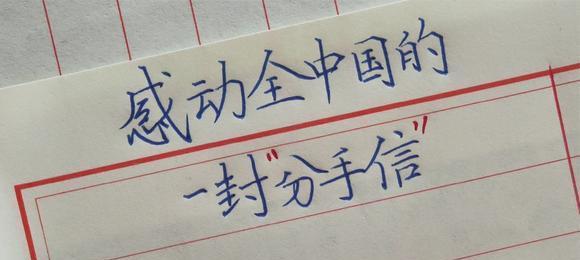 感动全中国的
一封"分手信"